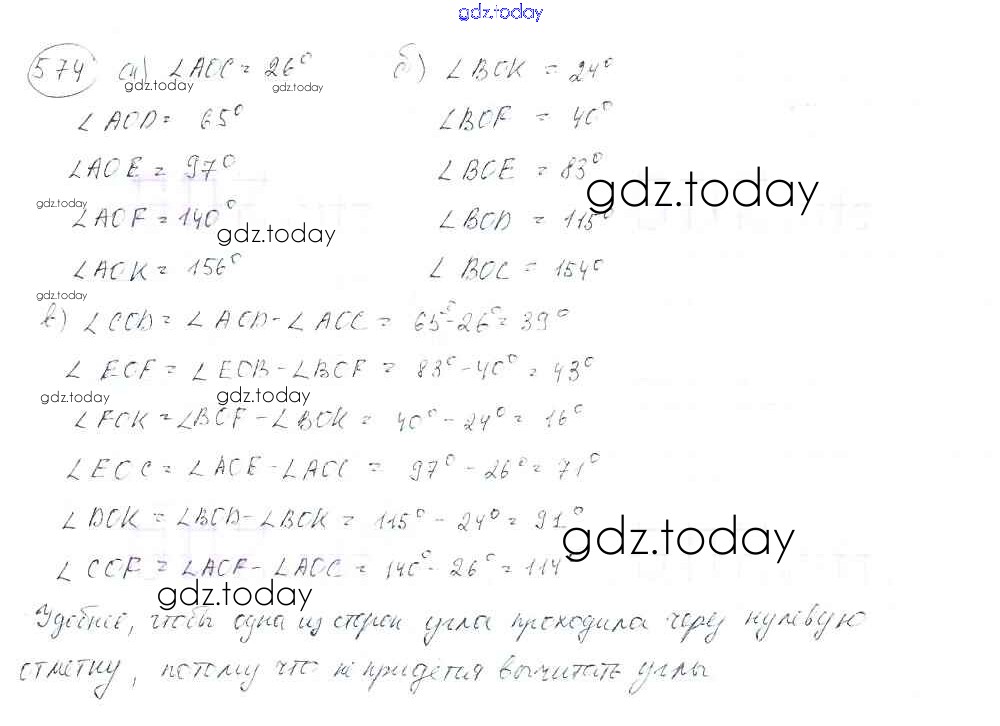 gdz.today
574 а) ∠AOC = 26° б) ∠BOK = 24°
gdz.today gdz.today
∠AOD = 65° ∠BOF = 40°
∠AOE = 97° ∠BOE = 83°
gdz.today gdz.today
∠AOF = 140° ∠BOD = 115°
gdz.today
∠AOK = 156° ∠BOC = 154°
gdz.today
в) ∠COD = ∠AOD - ∠AOC = 65° - 26° = 39°
∠EOF = ∠EOB - ∠BOF = 83° - 40° = 43°
gdz.today gdz.today
∠FOK = ∠BOF - ∠BOK = 40° - 24° = 16°
∠EOC = ∠AOE - ∠AOC = 97° - 26° = 71°
∠DOK = ∠BOD - ∠BOK = 115° - 24° = 91°
gdz.today
∠COF = ∠AOF - ∠AOC = 140° - 26° = 114°
gdz.today
Удобнее, чтобы одна из сторон угла проходила через нулевую
отметку, потому что не придётся вычитать углы